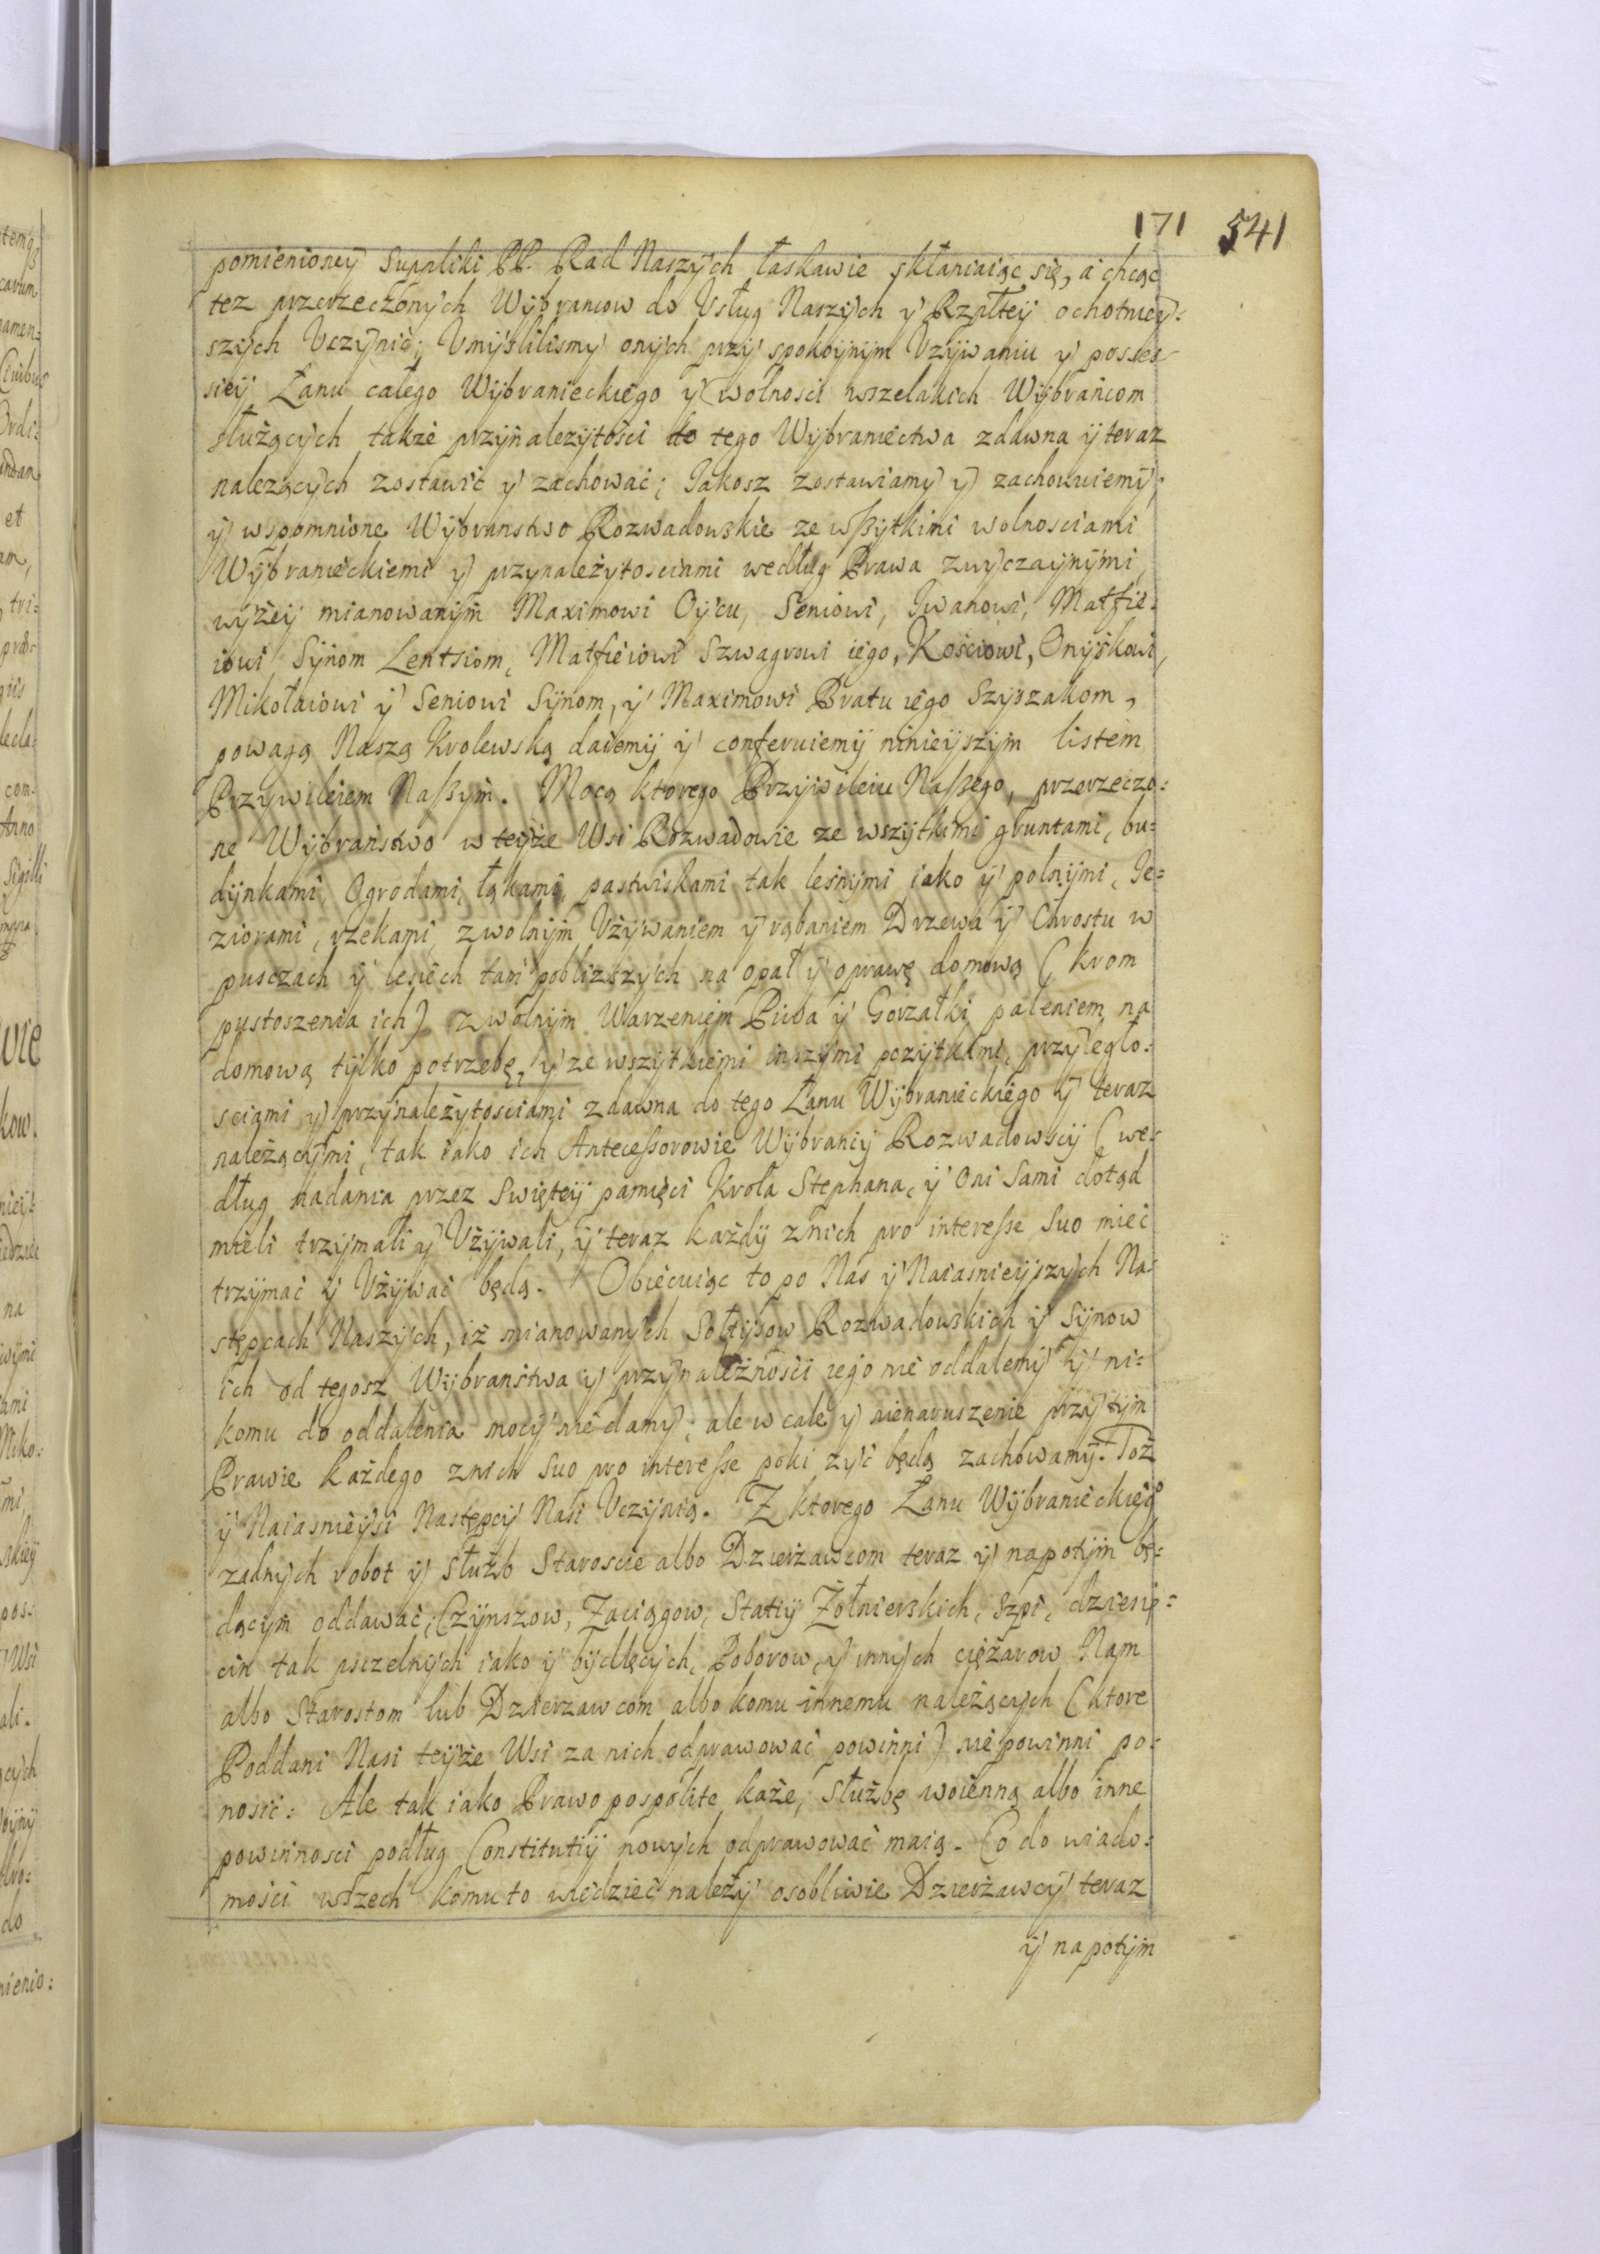 171 541
pomienioney Suppliki PP. Rad Naszych łaskawie skłaniaiąc się, a chcąc
tez przerzeczonych Wybrancow do Usług Naszych y Rzpłtey ochotniey=
szych Uczynić; Umyslilismy onych przy spokoynym Uzywaniu y posses-
siey Łanu całego Wybranieckiego y wolnosci wszelakich Wybrańcom
służących także przynalezytości do tego Wybraniectwa zdawna y teraz
nalezących zostawić y zachować; Jakosz zostawiamy y zachowuiemy;
y wspomnione Wybranstwo Rozwadowskie ze wßytkimi wolnosciami
Wybranieckiemi y przynależytosciami według Prawa zwyczaynymi,
wyżey mianowanym Maximowi Oycu, Seniowi, Iwanowi, Matfie=
iowi Synom Lentsiom, Matfieiowi Szwagrowi iego, Kościowi, Onyśkowi,
Mikołaiowi y Seniowi Synom, y Maximowi Bratu iego Szyszakom,
powagą Naszą Krolewską daiemy y conferuiemy ninieyszym listem
Przywileiem Naßym. Mocą ktorego Przywileiu Naßego, przerzeczo=
ne Wybraństwo w teyże Wsi Rozwadowie ze wszytkimi gruntami, bu=
dynkami, Ogrodami, łąkami, pastwiskami tak leśnymi iako y polnymi, Je=
ziorami, rzekami, zwolnym Używaniem y rąbaniem Drzewa y Chrostu w
pusczach y lesiech tam poblizszych na opał y oprawę domową (krom
pustoszenia ich) zwolnym Warzeniem Piwa y Gorzałki paleniem na
domową tylko potrzebę, y ze wszytkiemi inszymi pozytkami, przyległo=
sciami y przynależytosciami zdawna do tego Łanu Wybranieckiego y teraz
należącymi, tak iako ich Antecessorowie Wybrancy Rozwadowscy (we=
dług nadania przez Swiętey pamięci Krola Stephana, y Oni Sami dotąd
mieli trzymali y Używali, y teraz każdy znich pro interesse suo mieć
trzymać y Używać będą. Obiecuiąc to po Nas y Naiasnieyszych Na=
stępcach Naszych, iż mianowanych Sołtysow Rozwadowskich y Synow
ich od tegosz Wybraństwa y przynależności iego nie oddalemy y ni=
komu do oddalenia mocy nie damy; ale w cale y nienaruszenie przy tym
Prawie każdego znich suo pro interesse poki zyć będą zachowamy. Toż
y Naiasnieysi Następcy Nasi Uczynią. Z ktorego Łanu Wybranieckiego
zadnych robot y służb Staroscie albo Dzierżawcom teraz y napotym bę=
dącym oddawać; Czynszow, Zaciągow, Statiy Żołnierskich, Szpi, dziesię=
cin tak pszczelnych iako y bydlęcych, Poborow, y innych ciężarow Nam
albo Starostom lub Dzierzawcom albo komu innemu należących (ktore
Poddani Nasi teyże Wsi za nich odprawować powinni) nie powinni po=
nosić: Ale tak iako Prawo pospolite każe, służbę woienną albo inne
powinnosci podług Constitutiy nowych odprawować maią. Co do wiado=
mości wszech komu to wiedzieć należy osobliwie Dzierżawcy teraz
y na potym